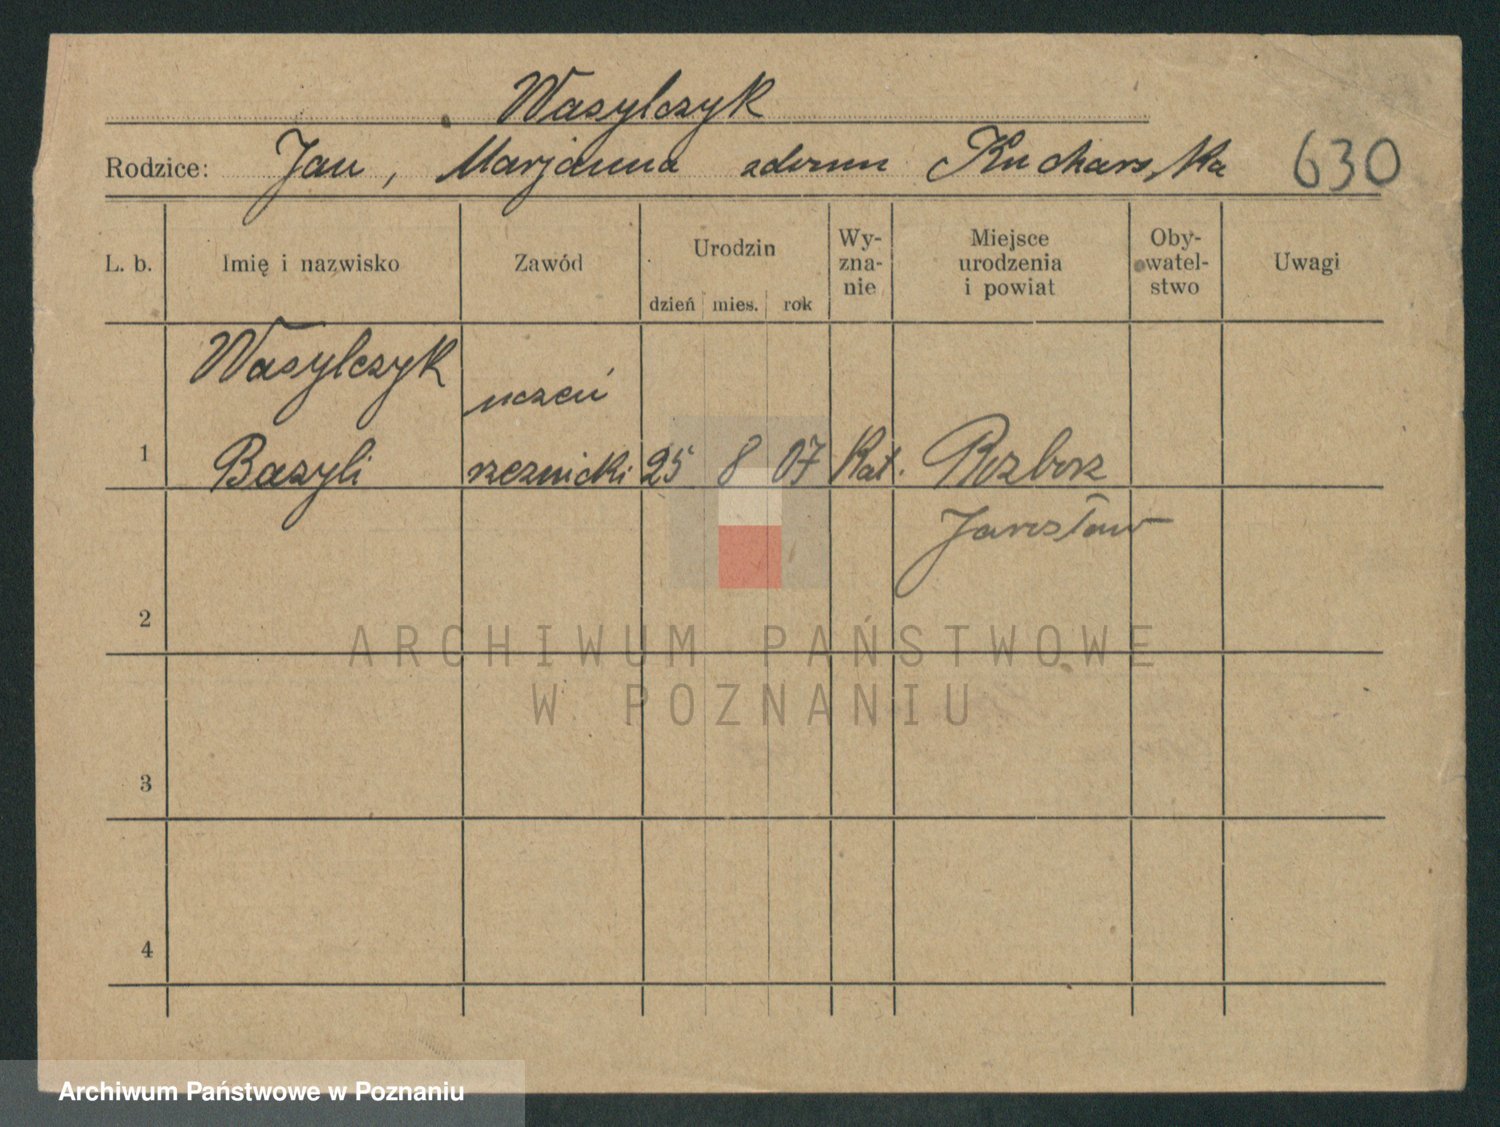 Wasylczyk
Rodzice: Jan, Marjanna zdomu Kucharska 630
L. b. Imię i nazwisko Zawód Urodzin dzień mies. rok Wy-zna-nie Miejsce urodzenia i powiat Oby-watel-stwo Uwagi
Wasylczyk uczeń
1 Bazyli rzeźnicki 25 8 07 Kat. Rozborz
Jarosław
2
ARCHIWUM PAŃSTWOWE
W POZNANIU
3
4
Archiwum Państwowe w Poznaniu